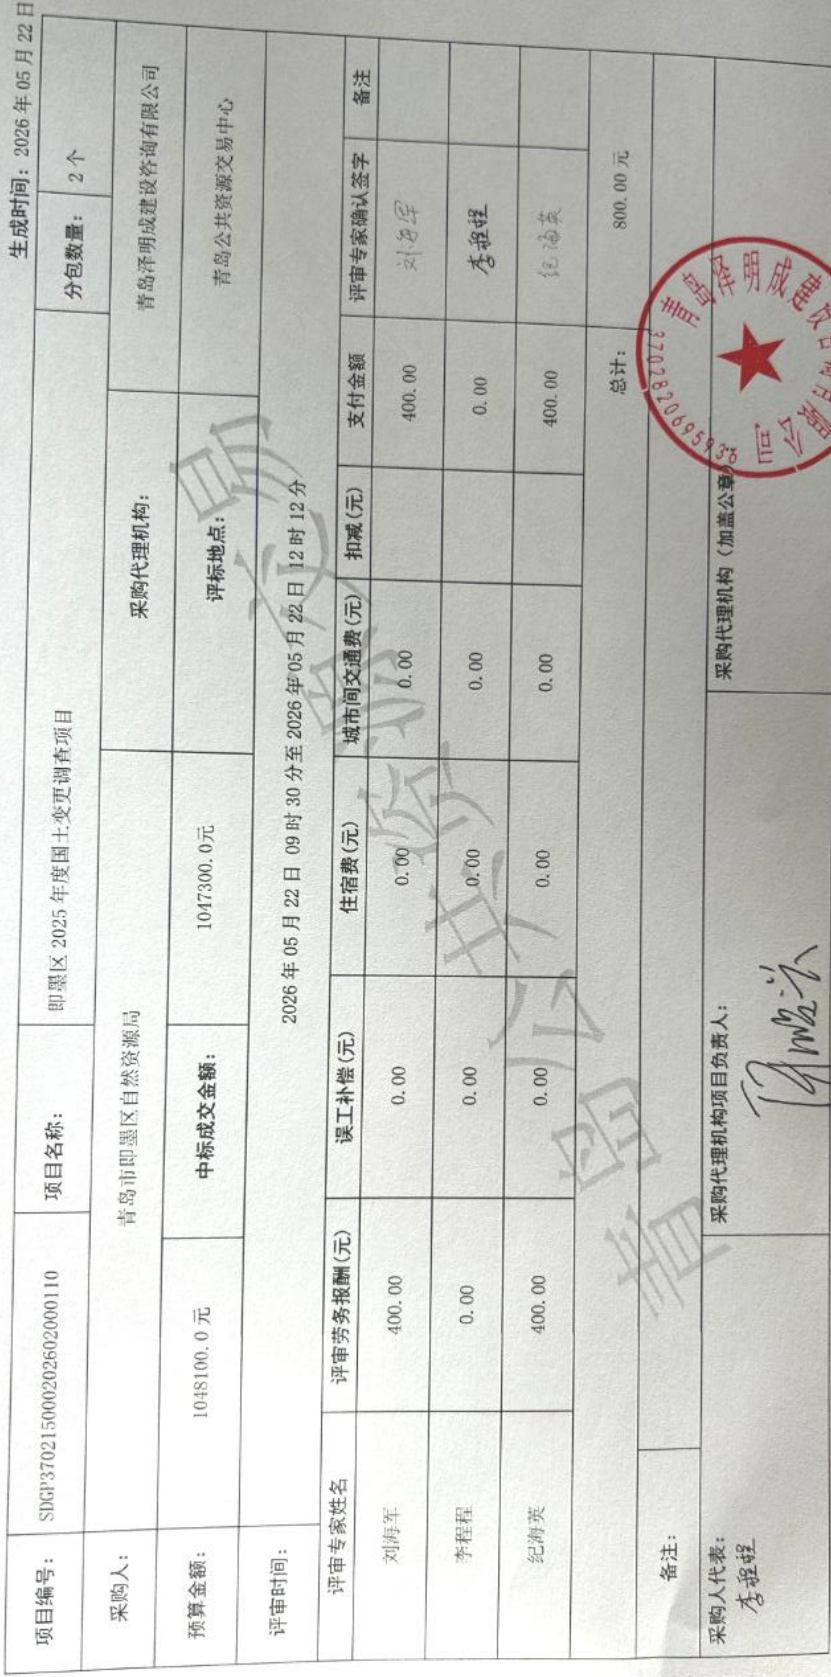 生成时间: 2026 年 05 月 22 日
项目编号: SDGP370215000202602000110 项目名称: 即墨区 2025 年度国土变更调查项目 分包数量: 2 个
采购人: 青岛市即墨区自然资源局 采购代理机构: 青岛泽明成建设咨询有限公司
预算金额: 1048100.0 元 中标成交金额: 1047300.0元 评标地点: 青岛公共资源交易中心
评审时间: 2026 年 05 月 22 日 09 时 30 分至 2026 年 05 月 22 日 12 时 12 分
评审专家姓名 评审劳务报酬(元) 误工补偿(元) 住宿费(元) 城市间交通费(元) 扣减(元) 支付金额 评审专家确认签字 备注
刘海军 400.00 0.00 0.00 0.00 400.00 刘海军
李程程 0.00 0.00 0.00 0.00 0.00 李程程
纪海英 400.00 0.00 0.00 0.00 400.00 纪海英
总计: 800.00 元
备注:
采购人代表: 采购代理机构项目负责人: 采购代理机构（加盖公章）:
李程程
青岛泽明成建设咨询有限公司
青岛公共资源交易